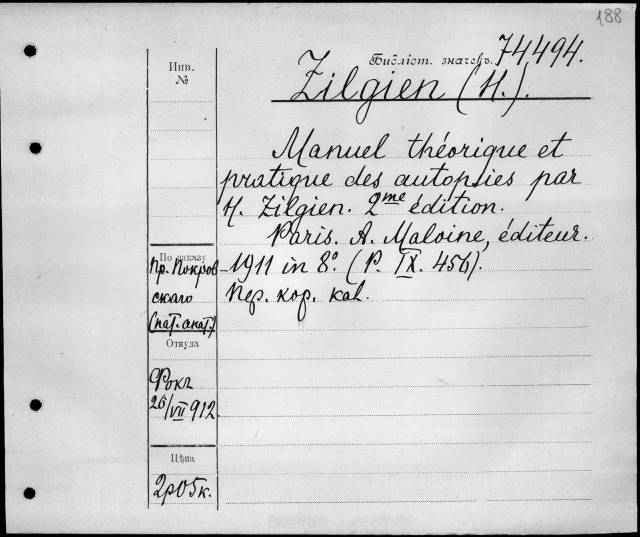 188
Инв.
№
Библіот. значекъ. 74494.
Zilgien (H.).
Manuel théorique et
pratique des autopsies par
H. Zilgien. 2me édition.
Paris. A. Maloine, éditeur.
1911 in 8°. (P. IX. 456).
Пер. кор. кал.
По заказу
Пр. Покров-
скаго
(пат. анат.)
Откуда
Фокъ
26/VII 912
Цѣна
2р05к.